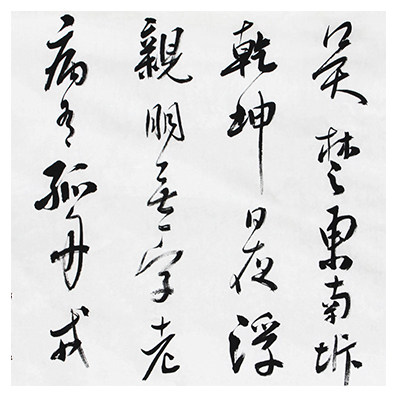 吳楚東南坼
乾坤日夜浮
親朋無一字老
病有孤舟戎